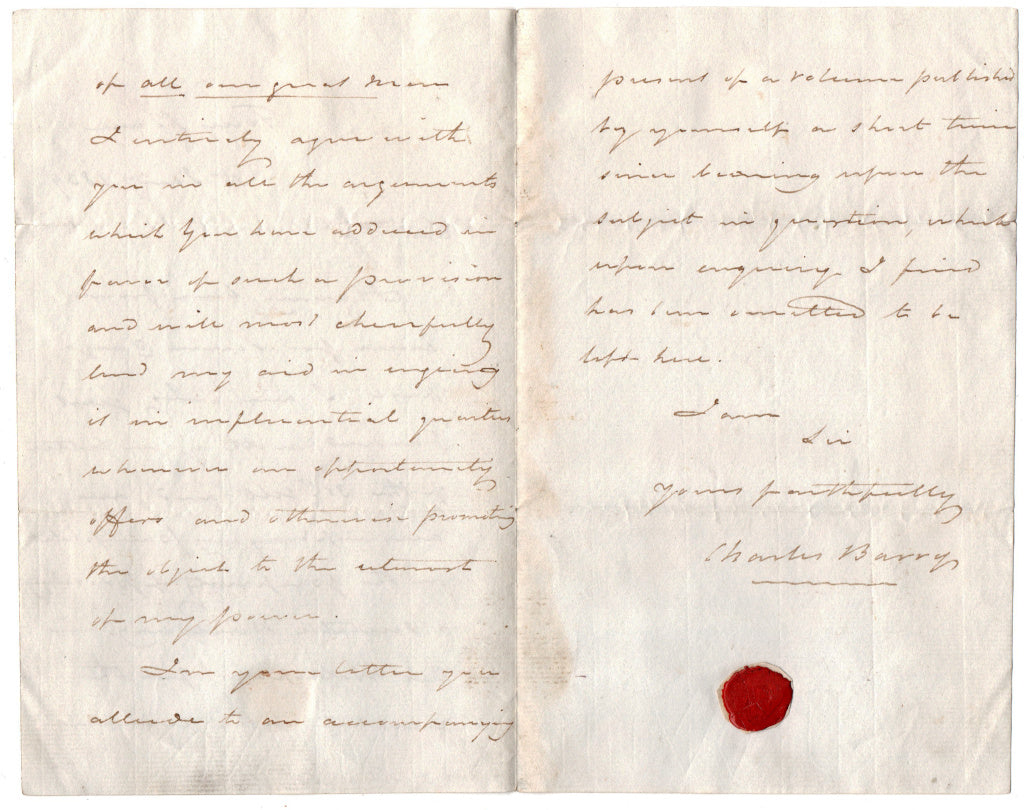 of all our great men
I entirely agree with
you in all the arguments
which you have adduced in
favor of such a provision
and will most cheerfully
lend my aid in urging
it in influential quarters
whenever an opportunity
offers and otherwise promoting
the object to the utmost
of my power.
In your letter you
allude to an accompanying
present of a volume published
by yourself a short time
since bearing upon the
subject in question, which
upon enquiry I find
has been omitted to be
left here.
I am
Sir
yours faithfully
Charles Barry